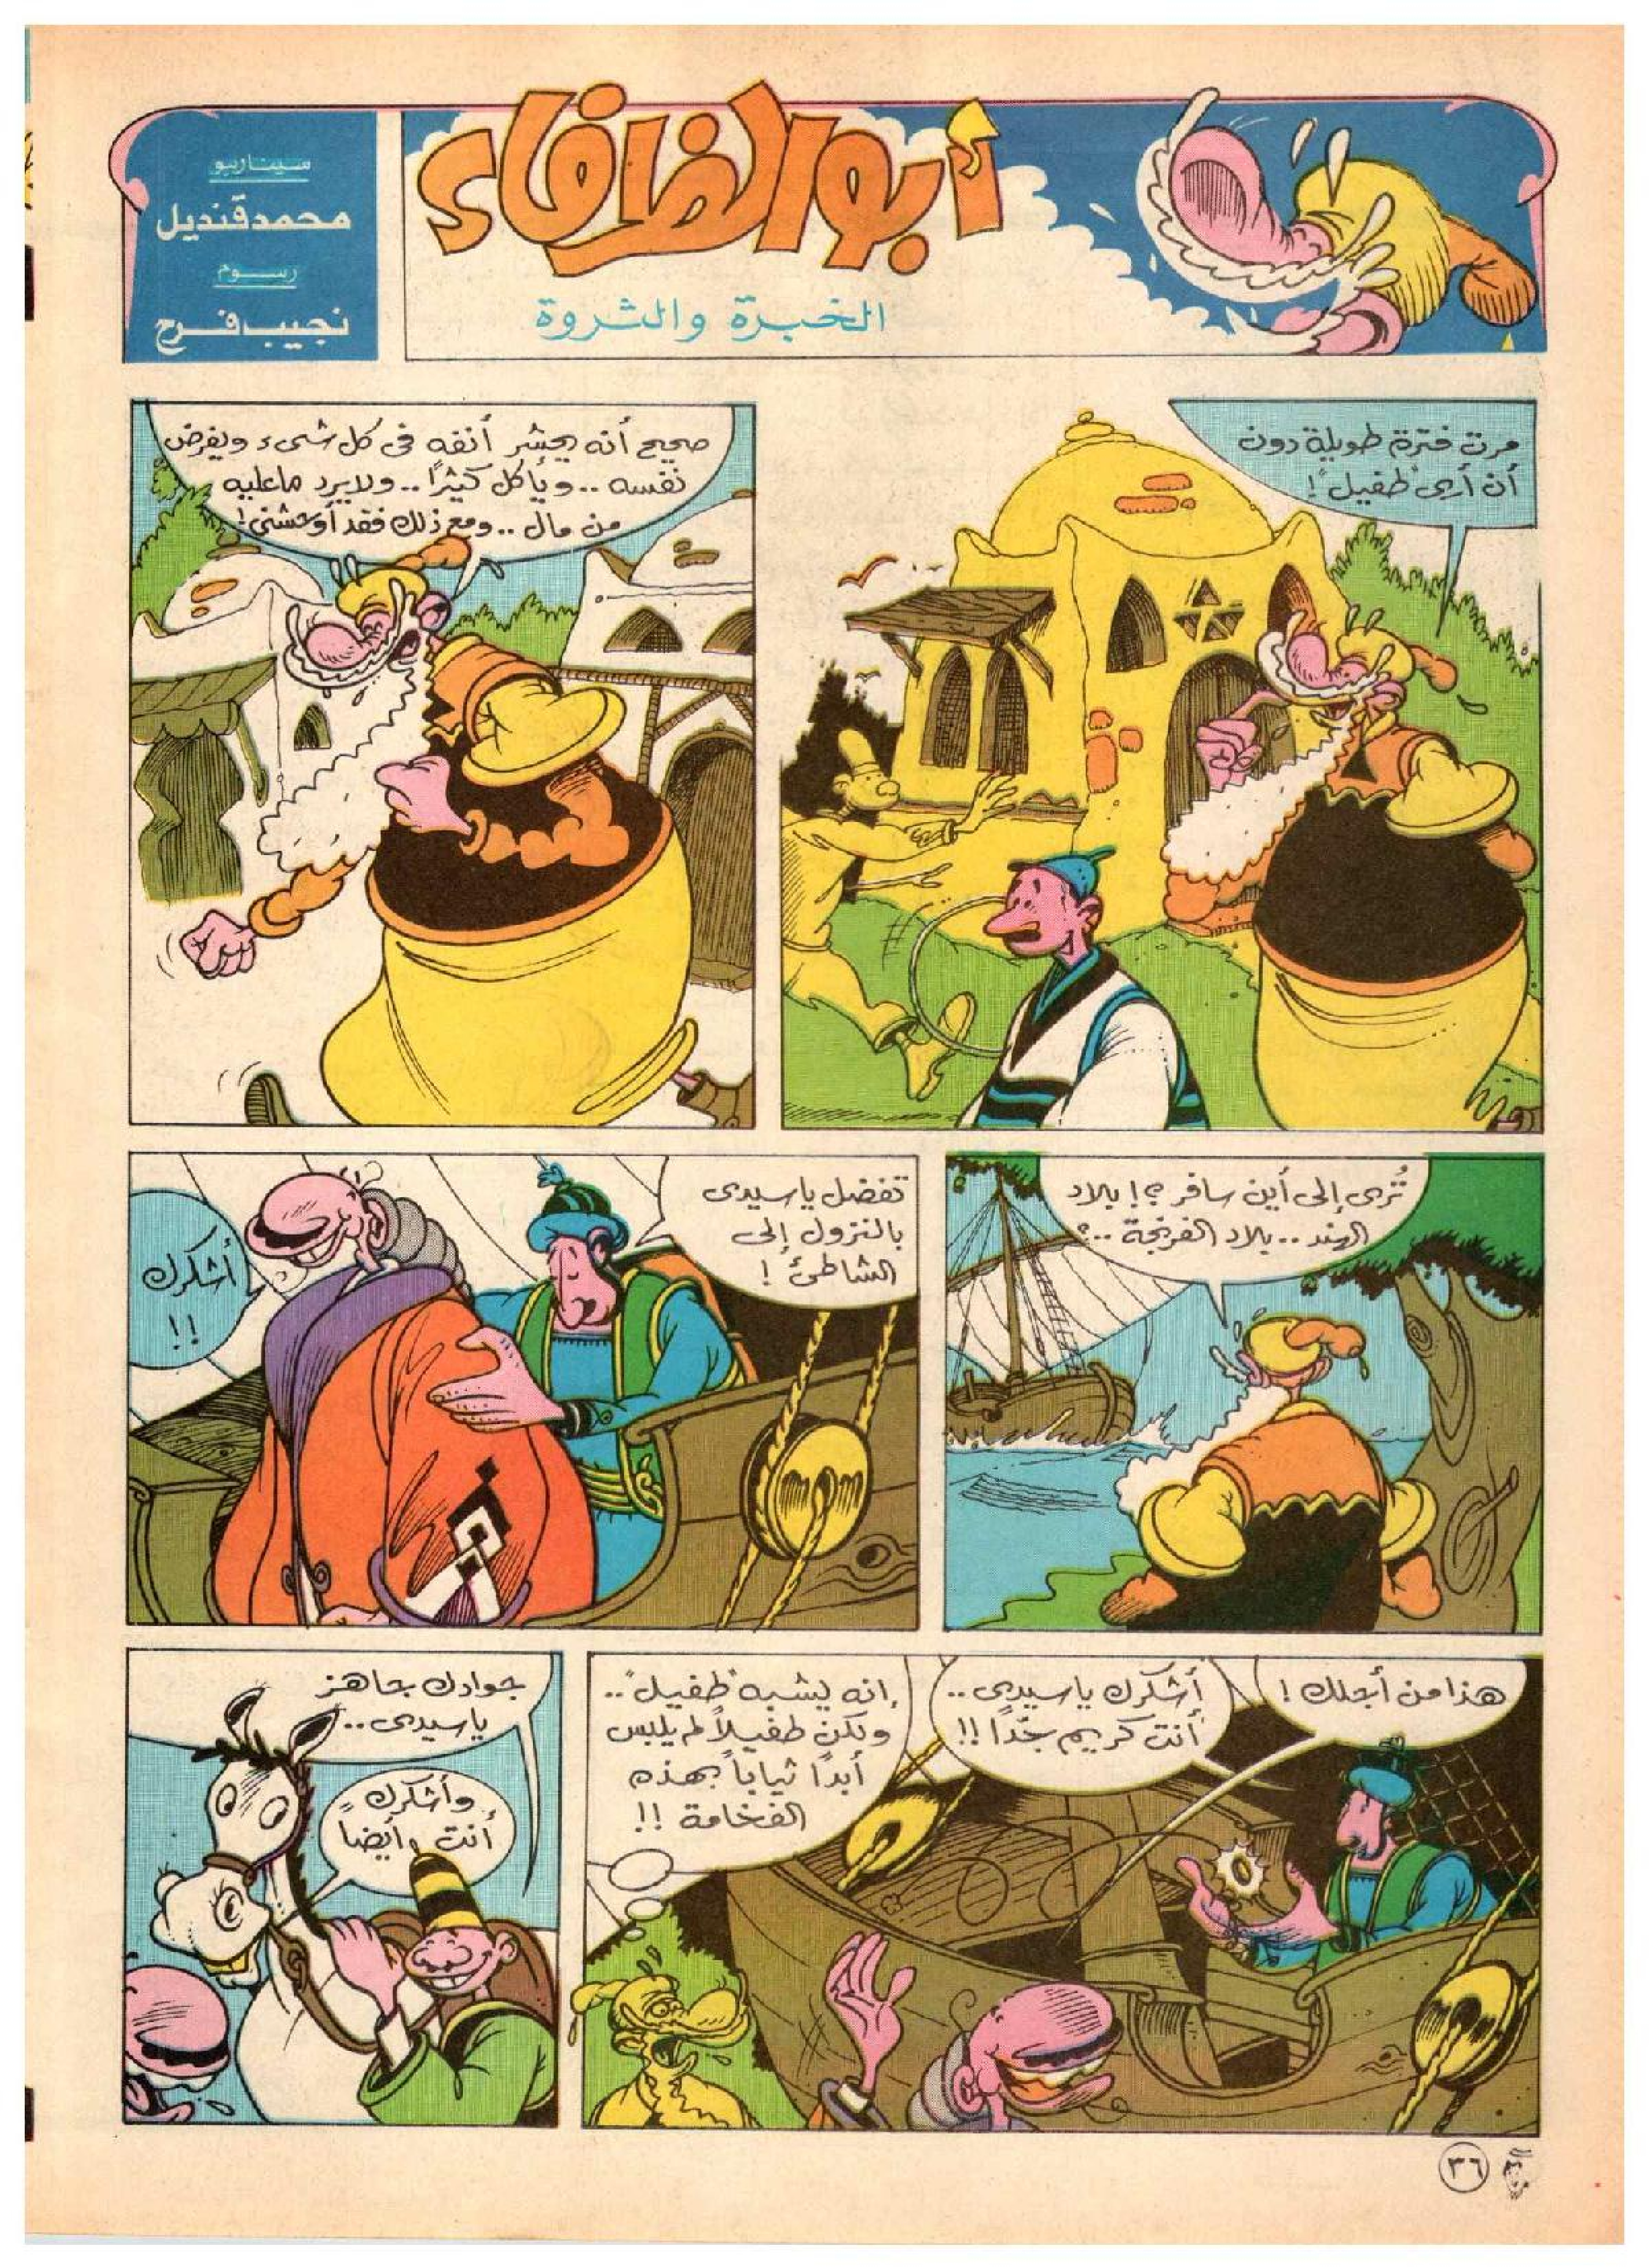 أبو الظرفاء
الخبرة والثروة
سيناريو
محمد قنديل
رسوم
نجيب فرح
مرت فترة طويلة دون
أن أرى "طفيل"!
صحيح أنه يحشر أنفه فى كل شىء ويفرض
نفسه .. ويأكل كثيرًا .. ولا يرد ما عليه
من مال .. ومع ذلك فقد أوحشنى!
تُرى إلى أين سافر ؟! بلاد
الهند .. بلاد الفرنجة ..؟
تفضل ياسيدى
بالنزول إلى
الشاطئ !
أشكرك
!!
هذا من أجلك !
أشكرك ياسيدى ..
أنت كريم جدًا !!
إنه يشبه "طفيل" ..
ولكن طفيلاً لم يلبس
أبدًا ثياباً بهذه
الفخامة !!
جوادك جاهز
ياسيدى ..
وأشكرك
أنت أيضاً
٣٦